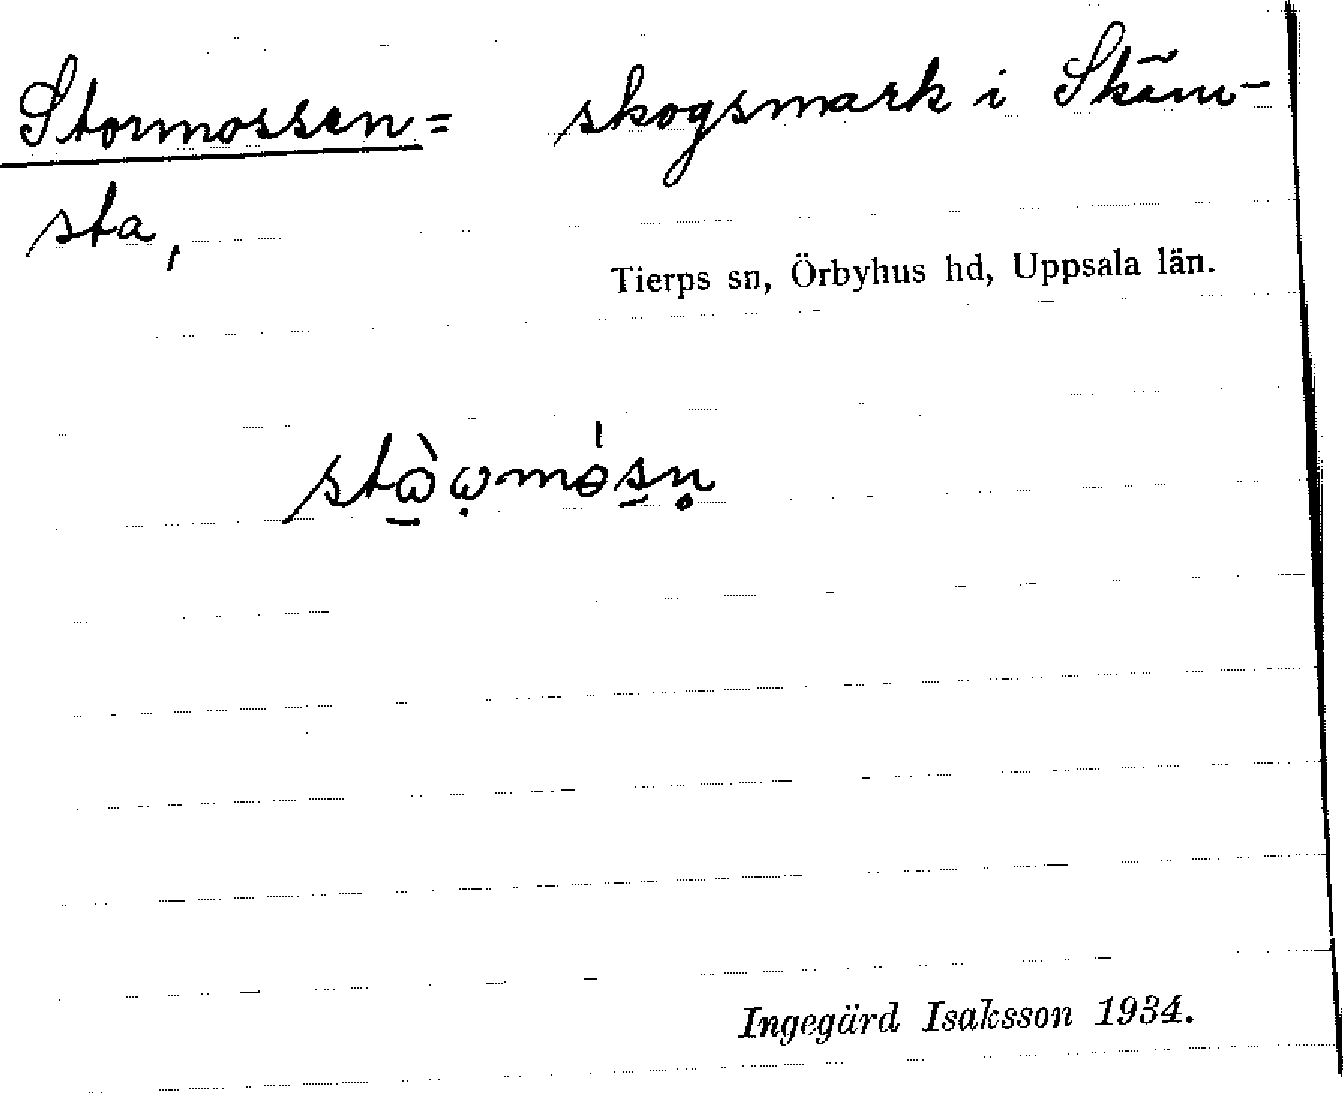 Stormossen = skogsmark i Skäm-
sta,
Tierps sn, Örbyhus hd, Uppsala län.
Ingegärd Isaksson 1934.